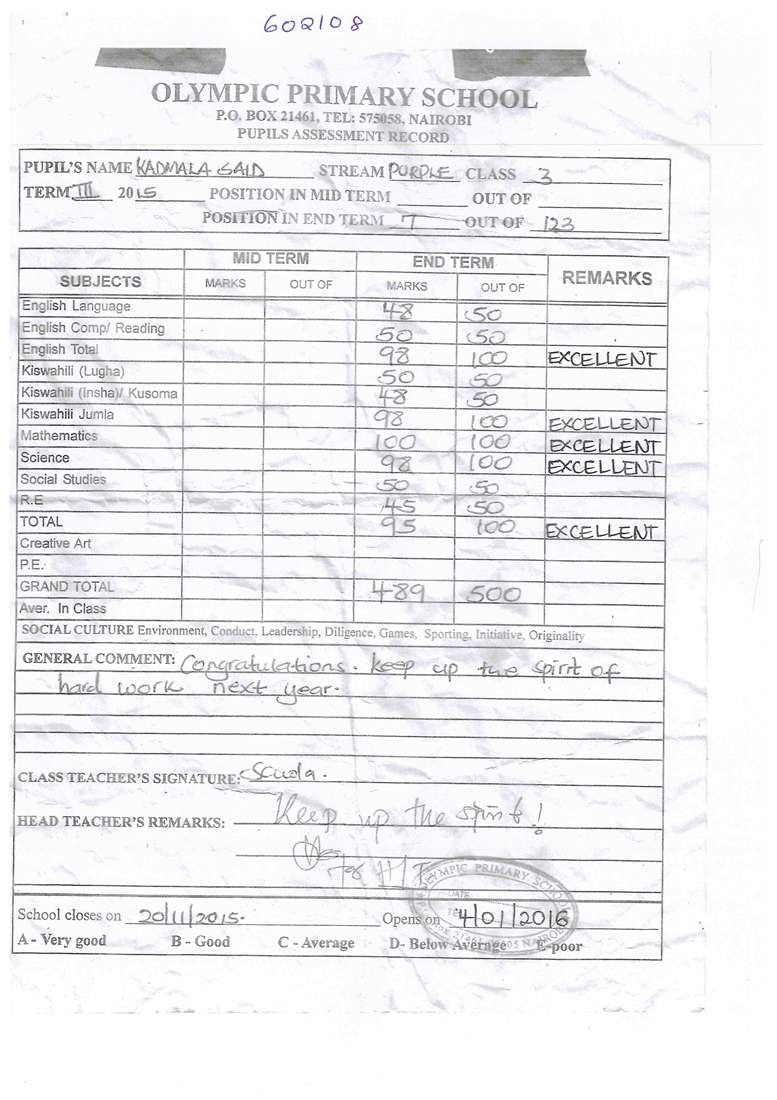 602108
OLYMPIC PRIMARY SCHOOL
P.O. BOX 21461, TEL: 575058, NAIROBI
PUPILS ASSESSMENT RECORD
PUPIL'S NAME KADMALA SAID STREAM PURPLE CLASS 3
TERM III 2015 POSITION IN MID TERM OUT OF
POSITION IN END TERM 7 OUT OF 123
SUBJECTS MID TERM END TERM REMARKS
MARKS OUT OF MARKS OUT OF
English Language 48 50
English Comp/ Reading 50 50
English Total 98 100 EXCELLENT
Kiswahili (Lugha) 50 50
Kiswahili (Insha)/ Kusoma 48 50
Kiswahili Jumla 98 100 EXCELLENT
Mathematics 100 100 EXCELLENT
Science 98 100 EXCELLENT
Social Studies 50 50
R.E 45 50
TOTAL 95 100 EXCELLENT
Creative Art
P.E.
GRAND TOTAL 489 500
Aver. In Class
SOCIAL CULTURE Environment, Conduct, Leadership, Diligence, Games, Sporting, Initiative, Originality
GENERAL COMMENT: Congratulations. keep up the spirit of
hard work next year.
CLASS TEACHER'S SIGNATURE:
HEAD TEACHER'S REMARKS: Keep up the spirit!
For H/T
OLYMPIC PRIMARY SCHOOL
DATE
School closes on 20/11/2015. Opens on 4/01/2016
A - Very good B - Good C - Average D- Below Average E-poor